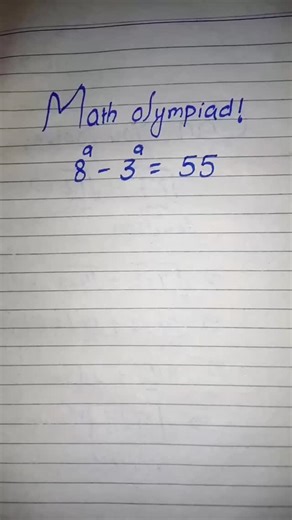 Math olympiad!
8ᵃ - 3ᵃ = 55